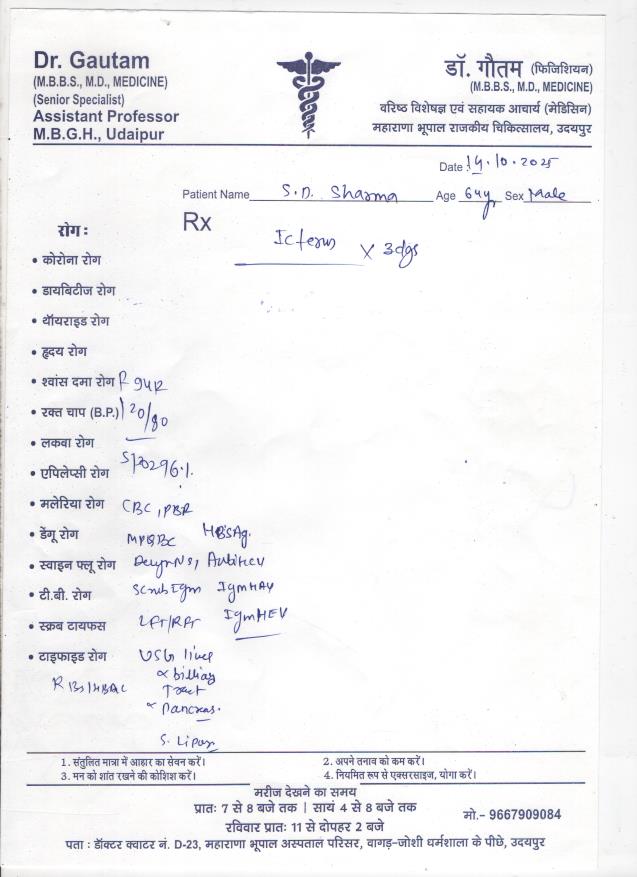 Dr. Gautam
(M.B.B.S., M.D., MEDICINE)
(Senior Specialist)
Assistant Professor
M.B.G.H., Udaipur
डॉ. गौतम (फिजिशियन)
(M.B.B.S., M.D., MEDICINE)
वरिष्ठ विशेषज्ञ एवं सहायक आचार्य (मेडिसिन)
महाराणा भूपाल राजकीय चिकित्सालय, उदयपुर
Date 14.10.2025
Patient Name S.D. Sharma Age 64y Sex Male
Rx
Icterus x 3dys
रोग :
• कोरोना रोग
• डायबिटीज रोग
• थॉयराइड रोग
• हृदय रोग
• श्वांस दमा रोग P 94R
• रक्त चाप (B.P.) 120/80
• लकवा रोग
• एपिलेप्सी रोग SPO2 96%
• मलेरिया रोग CBC, PBF
• डेंगू रोग MPQBC HBsAg.
• स्वाइन फ्लू रोग DengueNS1 AntiHCV
• टी.बी. रोग ScrubIgm IgmHAV
• स्क्रब टायफस LFT/RFT IgmHEV
• टाइफाइड रोग USG liver
& billiary
RBS/HBA1C Tract
& Pancreas.
S. Lipase
1. संतुलित मात्रा में आहार का सेवन करें।
2. अपने तनाव को कम करें।
3. मन को शांत रखने की कोशिश करें।
4. नियमित रूप से एक्सरसाइज, योगा करें।
मरीज देखने का समय
प्रातः 7 से 8 बजे तक | सायं 4 से 8 बजे तक
मो.- 9667909084
रविवार प्रातः 11 से दोपहर 2 बजे
पता : डॉक्टर क्वाटर नं. D-23, महाराणा भूपाल अस्पताल परिसर, वागड़-जोशी धर्मशाला के पीछे, उदयपुर